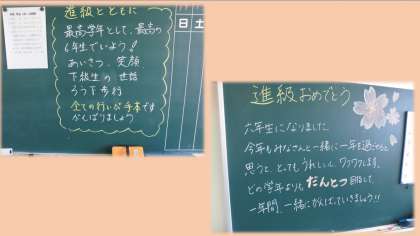 進級とともに
最高学年として、最高の
6年生でいよう!
あいさつ、笑顔
下級生の世話
ろう下歩行
全ての行いが手本です
がんばりましょう
日 土
進級おめでとう
六年生になりました。
今年もみなさんと一緒に一年を過ごせると
思うと、とってもうれしいし、ワクワクします。
どの学年よりも だんとつ 目指して、
一年間、一緒にがんばっていきましょう!!